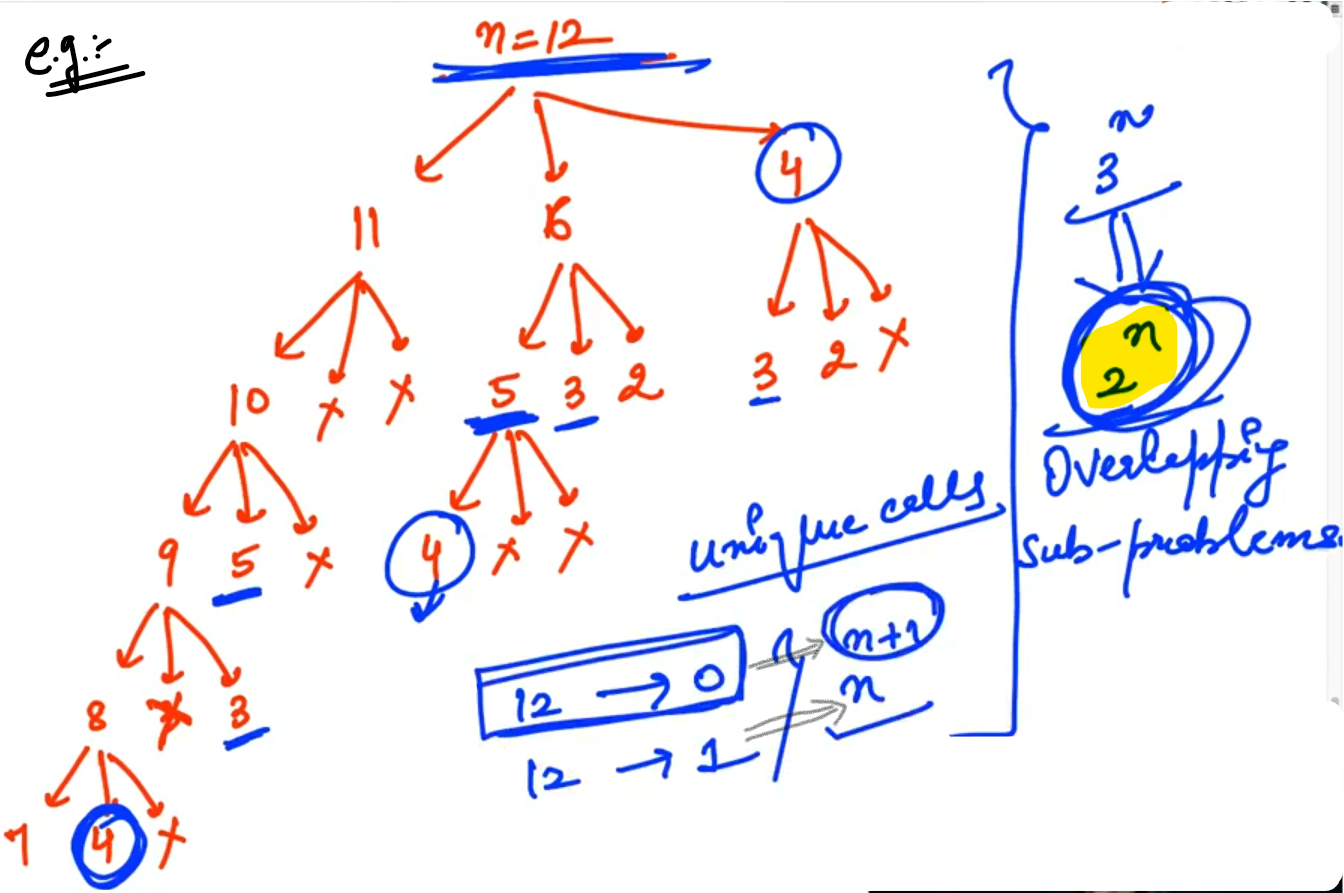 e.g.:-
n=12
11 6 4
10 x x 5 3 2 3 2 x
9 5 x 4 x x
8 x 3
7 4 x
unique calls
12 → 0 n+1
12 → 1 n
n
3
n
2
Overlapping
sub-problems.